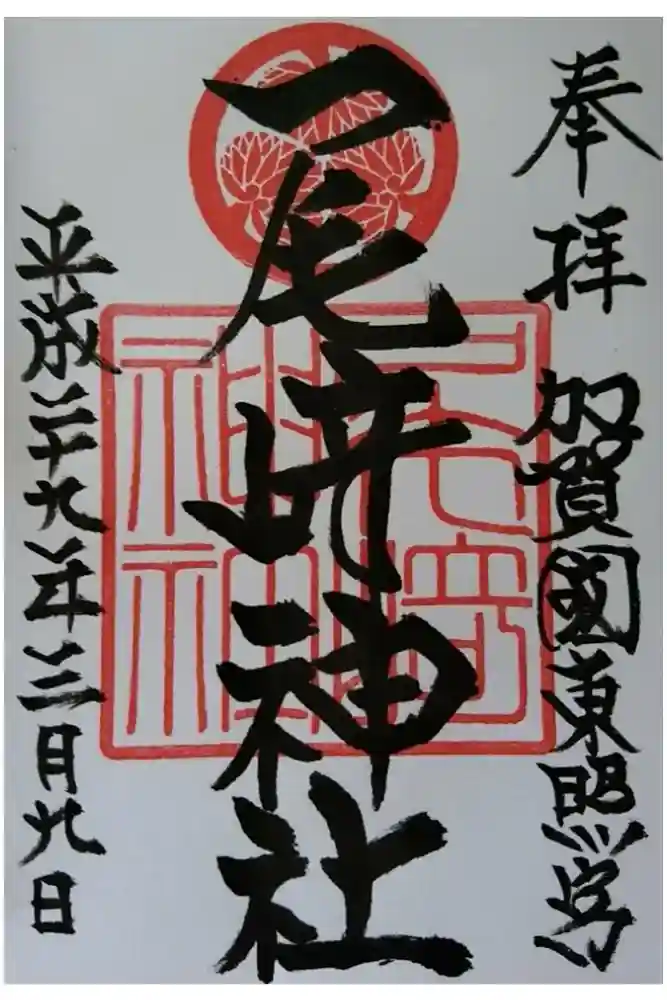 奉拝 加賀國東照宮
尾崎神社
平成二十九年三月九日